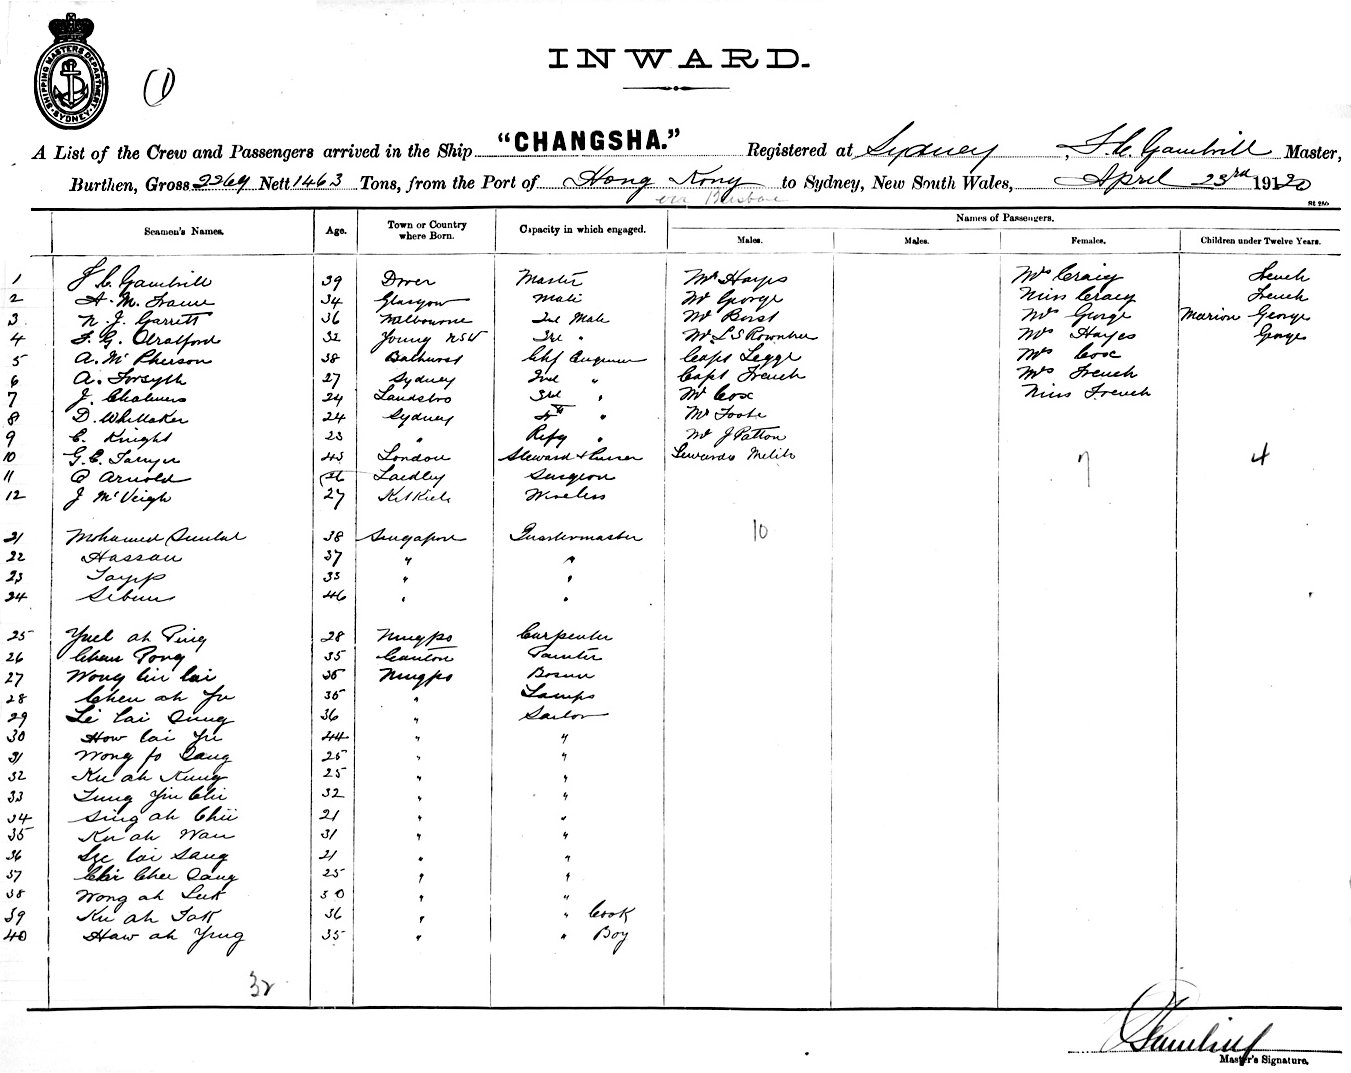 SHIPPING MASTERS DEPARTMENT SYDNEY
(1)
INWARD.
A List of the Crew and Passengers arrived in the Ship "CHANGSHA." Registered at Sydney, Gambrill Master,
Burthen, Gross 2269 Nett 1463 Tons, from the Port of Hong Kong to Sydney, New South Wales, April 23rd 1920
via Brisbane
Seamen's Names. Age. Town or Country where Born. Capacity in which engaged. Names of Passengers.
Males. Males. Females. Children under Twelve Years.
1 Gambrill 39 Dover Master Mr Hayes Mrs Craig French
2 A. M. Frame 34 Glasgow Mate Mr George Miss Craig French
3 N. J. Garrett 36 Melbourne 2nd Mate Mr Mrs George Marion George
4 F. G. 32 Young NSW 3rd " Mr L S Mrs Hayes George
5 A. McPherson 38 Bathurst Chf Engineer Capt Legge Mrs Cox
6 A. Forsyth 27 Sydney 2nd " Capt French Mrs French
7 J. Chalmers 24 3rd " Mr Cox Miss French
8 D. Whittaker 24 Sydney 4th " Mr Foote
9 C. Knight 23 " Refg " Mr J Patton
10 G. C. 43 London Steward & Purser 7 4
11 Arnold Laidley Surgeon
12 J McVeigh 27 Wireless
10
21 Mohamed 38 Singapore Quartermaster
22 Hassan 37 " "
23 33 " "
24 46 " "
25 Yuel ah Ping 28 Ningpo Carpenter
26 Chan Pong 35 Canton Painter
27 Wong lai 35 Ningpo Bosun
28 Chen ah Yu 35 " Lamps
29 lai 36 " Sailor
30 How lai Yu 44 " "
31 Wong fo 25 " "
32 Ku ah Kung 25 " "
33 Tung 32 " "
34 Sing ah 21 " "
35 Ku ah Wan 31 " "
36 lai Sang 21 " "
37 25 " "
38 Wong ah 30 " "
39 Ku ah 36 " " Cook
40 Haw ah Yung 35 " " Boy
32
Master's Signature.